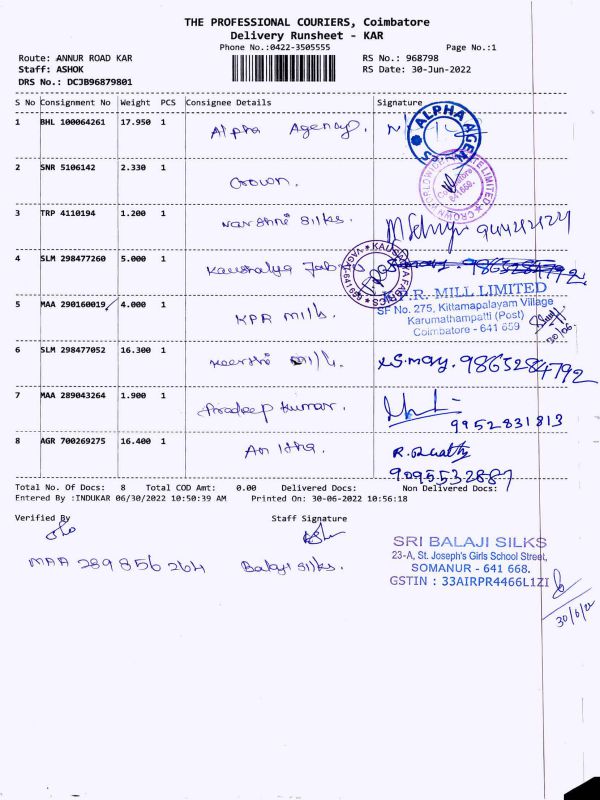 THE PROFESSIONAL COURIERS, Coimbatore
Delivery Runsheet - KAR
Phone No.:0422-3505555
Page No.:1
Route: ANNUR ROAD KAR
RS No.: 968798
Staff: ASHOK
RS Date: 30-Jun-2022
DRS No.: DCJB96879801
S No Consignment No Weight PCS Consignee Details Signature
1 BHL 100064261 17.950 1 Alpha Agency.
ALPHA AGENC
2 SNR 5106142 2.330 1 Crown.
CROWN WORLDWIDE LIMITED
Coimbatore
641668.
3 TRP 4110194 1.200 1 Varshni silks. 9442121224
4 SLM 298477260 5.000 1 Kaushalya Fabrics
KAUSHALYA FABRICS
9865284792
5 MAA 290160019 4.000 1 KPR Mills.
K.P.R. MILL LIMITED
SF No. 275, Kittamapalayam Village
Karumathampatti (Post)
Coimbatore - 641 659
30/06
6 SLM 298477052 16.300 1 Keerthi Mill. S.may. 9865284792
7 MAA 289043264 1.900 1 Pradeep kumar.
9952831813
8 AGR 700269275 16.400 1 Anitha.
9095532887
Total No. Of Docs: 8 Total COD Amt: 0.00 Delivered Docs: Non Delivered Docs:
Entered By :INDUKAR 06/30/2022 10:50:39 AM Printed On: 30-06-2022 10:56:18
Verified By Staff Signature
MAA 289856264 Balaji silks.
SRI BALAJI SILKS
23-A, St. Joseph's Girls School Street,
SOMANUR - 641 668.
GSTIN : 33AIRPR4466L1ZI
30/6/22